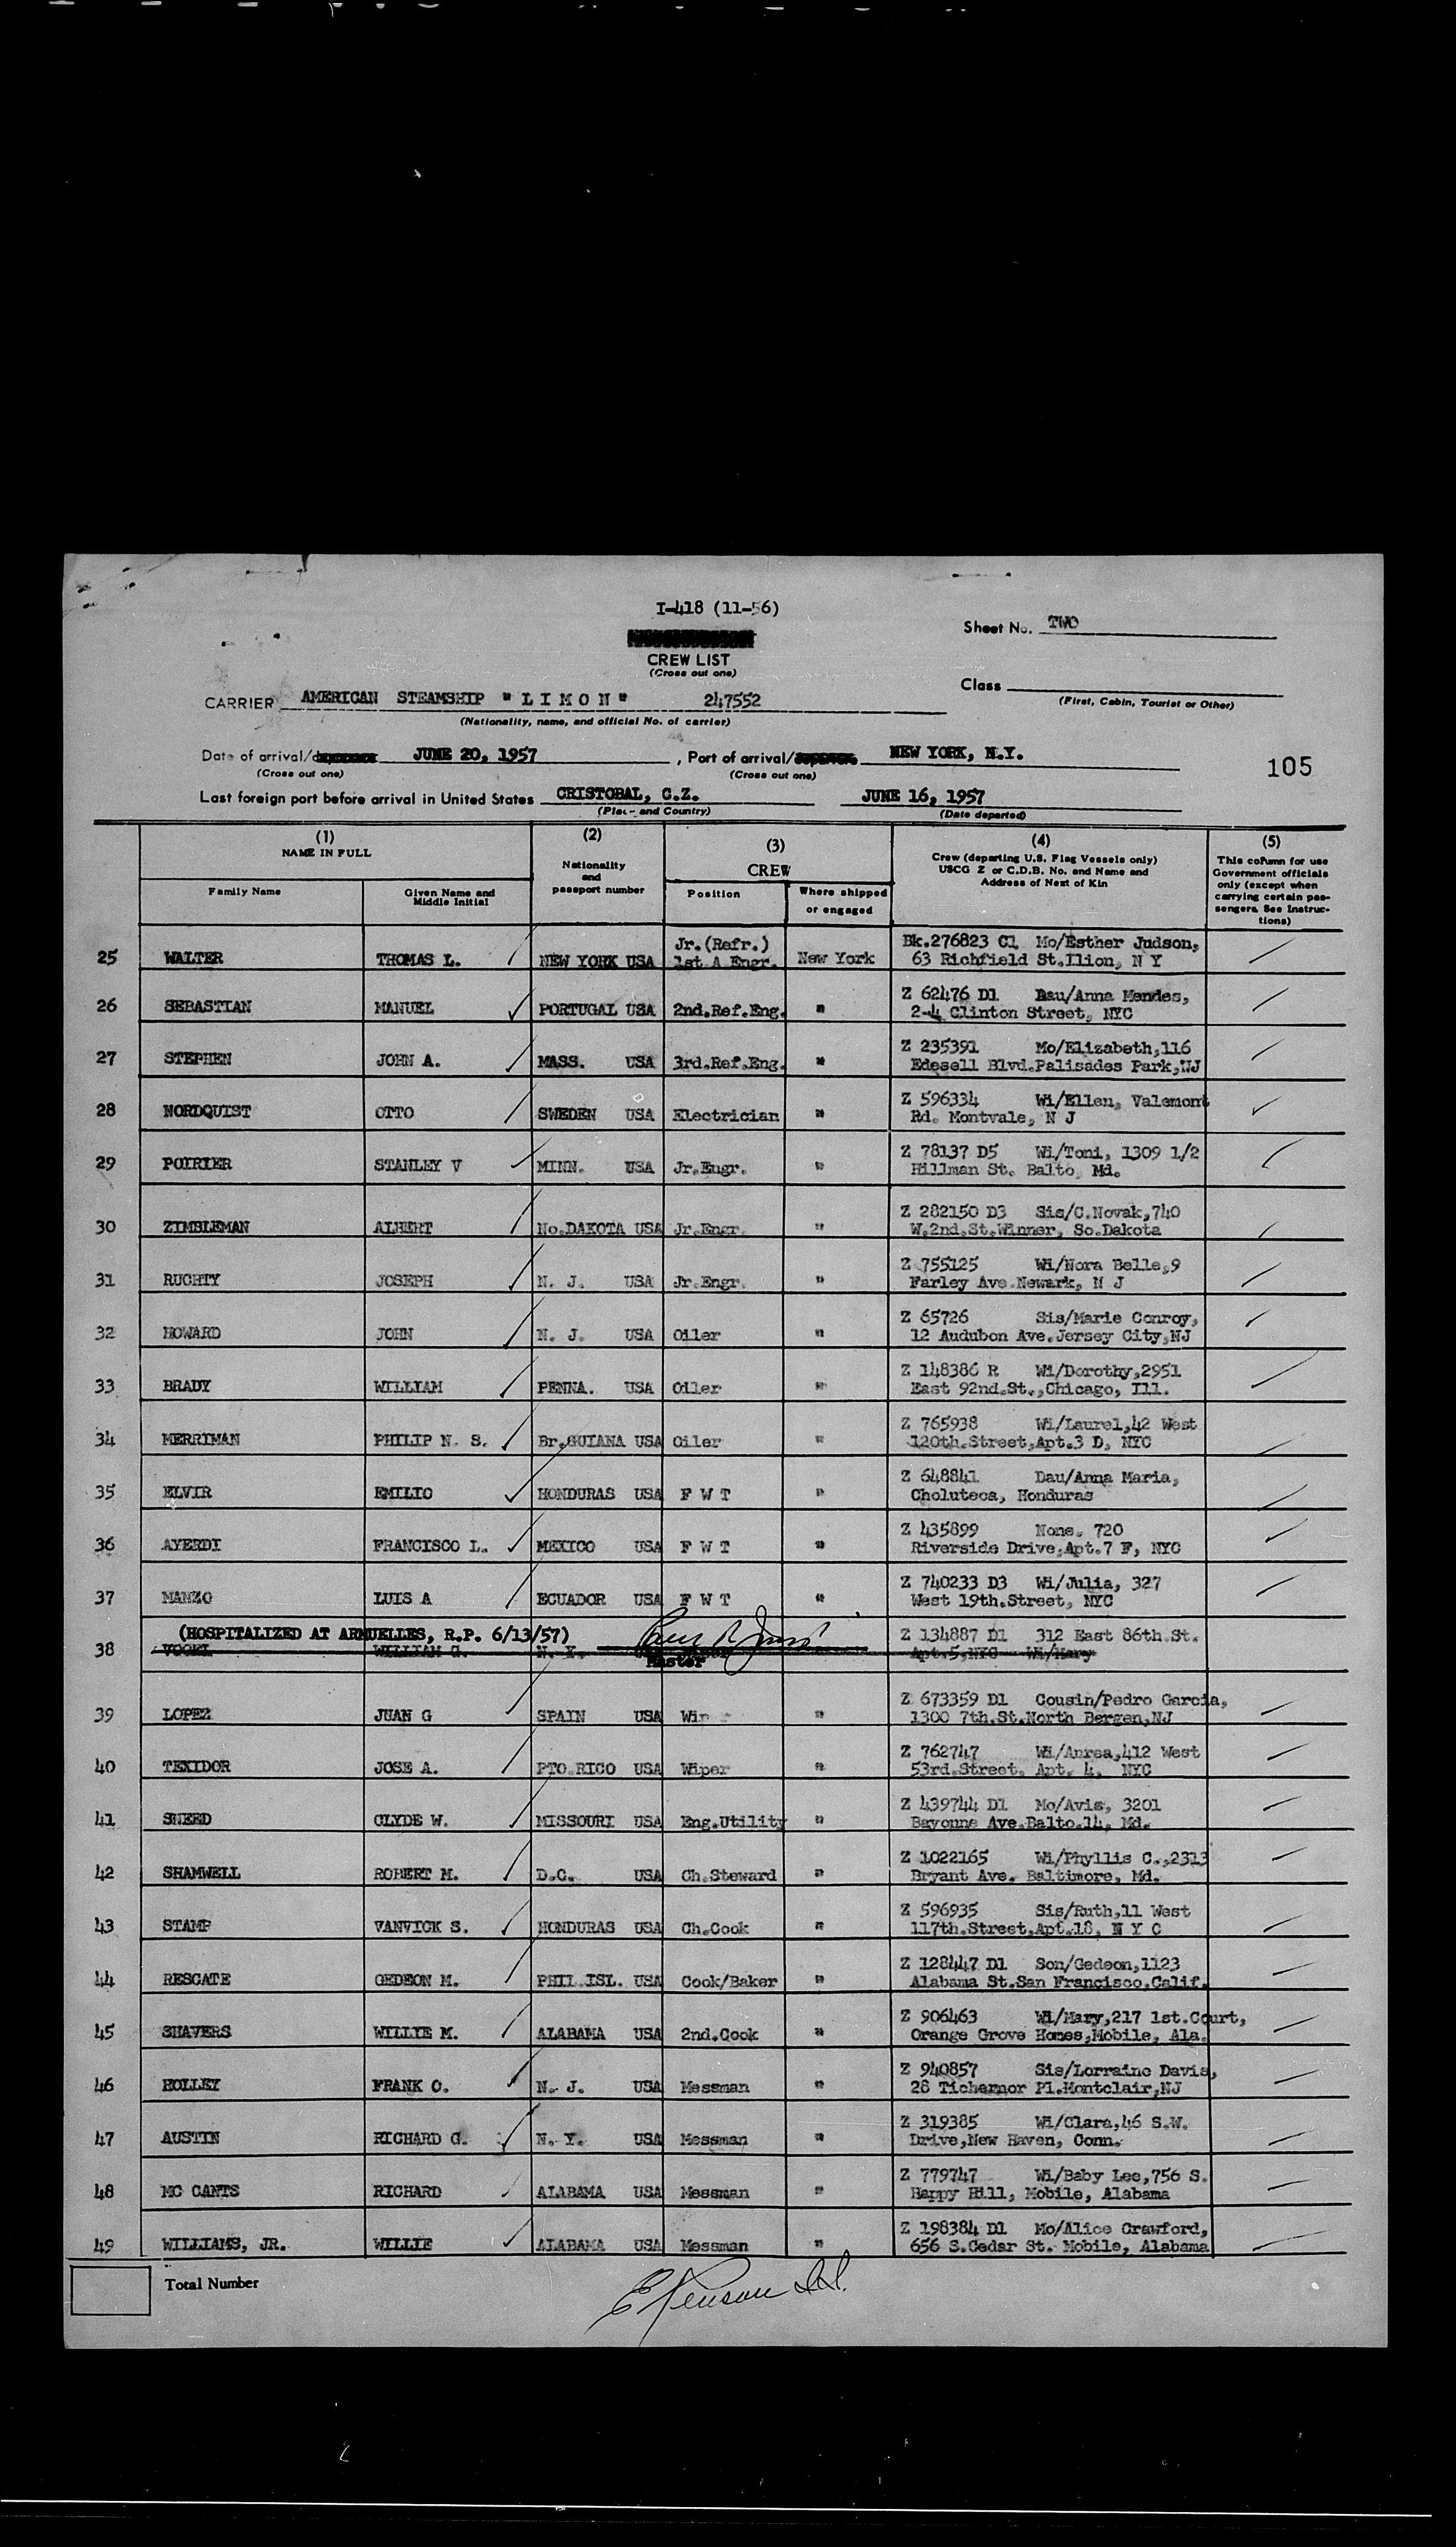 I-418 (11-56)
Sheet No. TWO
CREW LIST
(Cross out one)
CARRIER AMERICAN STEAMSHIP "LIMON" 247552
Class
(Nationality, name, and official No. of carrier)
(First, Cabin, Tourist or Other)
Date of arrival/ JUNE 20, 1957, Port of arrival/ NEW YORK, N.Y.
(Cross out one) (Cross out one)
105
Last foreign port before arrival in United States CRISTOBAL, C.Z. JUNE 16, 1957
(Place and Country) (Date departed)
(1) NAME IN FULL
Family Name
Given Name and Middle Initial
(2) Nationality and passport number
(3) CREW
Position
Where shipped or engaged
(4) Crew (departing U.S. Flag Vessels only) USCG Z or C.D.B. No. and Name and Address of Next of Kin
(5) This column for use Government officials only (except when carrying certain passengers. See Instructions)
25 WALTER THOMAS L. NEW YORK USA Jr.(Refr.) 1st A Engr. New York Bk.276823 C1 Mo/Esther Judson,
63 Richfield St.Ilion, N Y
26 SEBASTIAN MANUEL PORTUGAL USA 2nd.Ref.Eng. " Z 62476 D1 Dau/Anna Mendes,
2-4 Clinton Street, NYC
27 STEPHEN JOHN A. MASS. USA 3rd.Ref.Eng. " Z 235391 Mo/Elizabeth,116
Edesell Blvd.Palisades Park,NJ
28 NORDQUIST OTTO SWEDEN USA Electrician " Z 596334 Wi/Ellen, Valemont
Rd. Montvale, N J
29 POIRIER STANLEY V MINN. USA Jr.Engr. " Z 78137 D5 Wi/Toni, 1309 1/2
Hillman St. Balto, Md.
30 ZIMBLEMAN ALBERT No.DAKOTA USA Jr.Engr. " Z 282150 D3 Sis/C.Novak,740
W.2nd.St.Winner, So.Dakota
31 RUCHTY JOSEPH N. J. USA Jr.Engr. " Z 755125 Wi/Nora Belle,9
Farley Ave.Newark, N J
32 HOWARD JOHN N. J. USA Oiler " Z 65726 Sis/Marie Conroy,
12 Audubon Ave.Jersey City,NJ
33 BRADY WILLIAM PENNA. USA Oiler " Z 148386 R Wi/Dorothy,2951
East 92nd.St.,Chicago, Ill.
34 MERRIMAN PHILIP N. S. Br.GUIANA USA Oiler " Z 765938 Wi/Laurel,42 West
120th.Street,Apt.3 D, NYC
35 ELVIR EMILIO HONDURAS USA F W T " Z 648841 Dau/Anna Maria,
Choluteca, Honduras
36 AYERDI FRANCISCO L. MEXICO USA F W T " Z 435899 None. 720
Riverside Drive,Apt.7 F, NYC
37 MANZO LUIS A ECUADOR USA F W T " Z 740233 D3 Wi/Julia, 327
West 19th.Street, NYC
(HOSPITALIZED AT ARMUELLES, R.P. 6/13/57)
38 VOGEL WILLIAM G. N. Y. Master Z 134887 D1 312 East 86th.St.
Apt.5,NYC Wi/Mary
39 LOPEZ JUAN G SPAIN USA " Z 673359 D1 Cousin/Pedro Garcia,
1300 7th.St.North Bergen,NJ
40 TEXIDOR JOSE A. PTO.RICO USA Wiper " Z 762747 Wi/Aurea,412 West
53rd.Street, Apt. 4, NYC
41 SNEED CLYDE W. MISSOURI USA Eng.Utility " Z 439744 D1 Mo/Avis, 3201
Bayonne Ave.Balto.14, Md.
42 SHAMWELL ROBERT M. D.C. USA Ch.Steward " Z 1022165 Wi/Phyllis C.,2313
Bryant Ave. Baltimore, Md.
43 STAMP VANVICK S. HONDURAS USA Ch.Cook " Z 596935 Sis/Ruth,11 West
117th.Street,Apt.18, N Y C
44 RESCATE GEDEON M. PHIL.ISL. USA Cook/Baker " Z 128447 D1 Son/Gedeon,1123
Alabama St.San Francisco,Calif.
45 SHAVERS WILLIE M. ALABAMA USA 2nd.Cook " Z 906463 Wi/Mary,217 1st.Court,
Orange Grove Homes,Mobile, Ala.
46 HOLLEY FRANK O. N. J. USA Messman " Z 940857 Sis/Lorraine Davis,
28 Tichernor Pl.Montclair,NJ
47 AUSTIN RICHARD G. N. Y. USA Messman " Z 319385 Wi/Clara,46 S.W.
Drive,New Haven, Conn.
48 MC CANTS RICHARD ALABAMA USA Messman " Z 779747 Wi/Baby Lee,756 S.
Happy Hill, Mobile, Alabama
49 WILLIAMS, JR. WILLIE ALABAMA USA Messman " Z 198384 D1 Mo/Alice Crawford,
656 S.Cedar St. Mobile, Alabama
Total Number